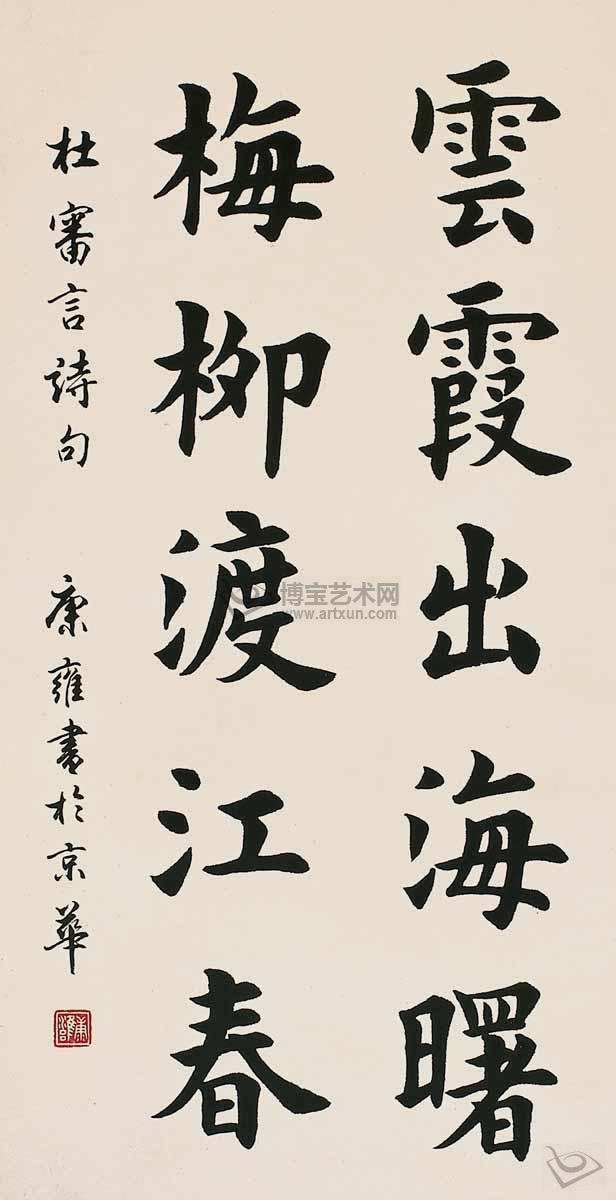 雲霞出海曙
梅柳渡江春
杜審言詩句 康雍書於京華
博宝艺术网
www.artxun.com